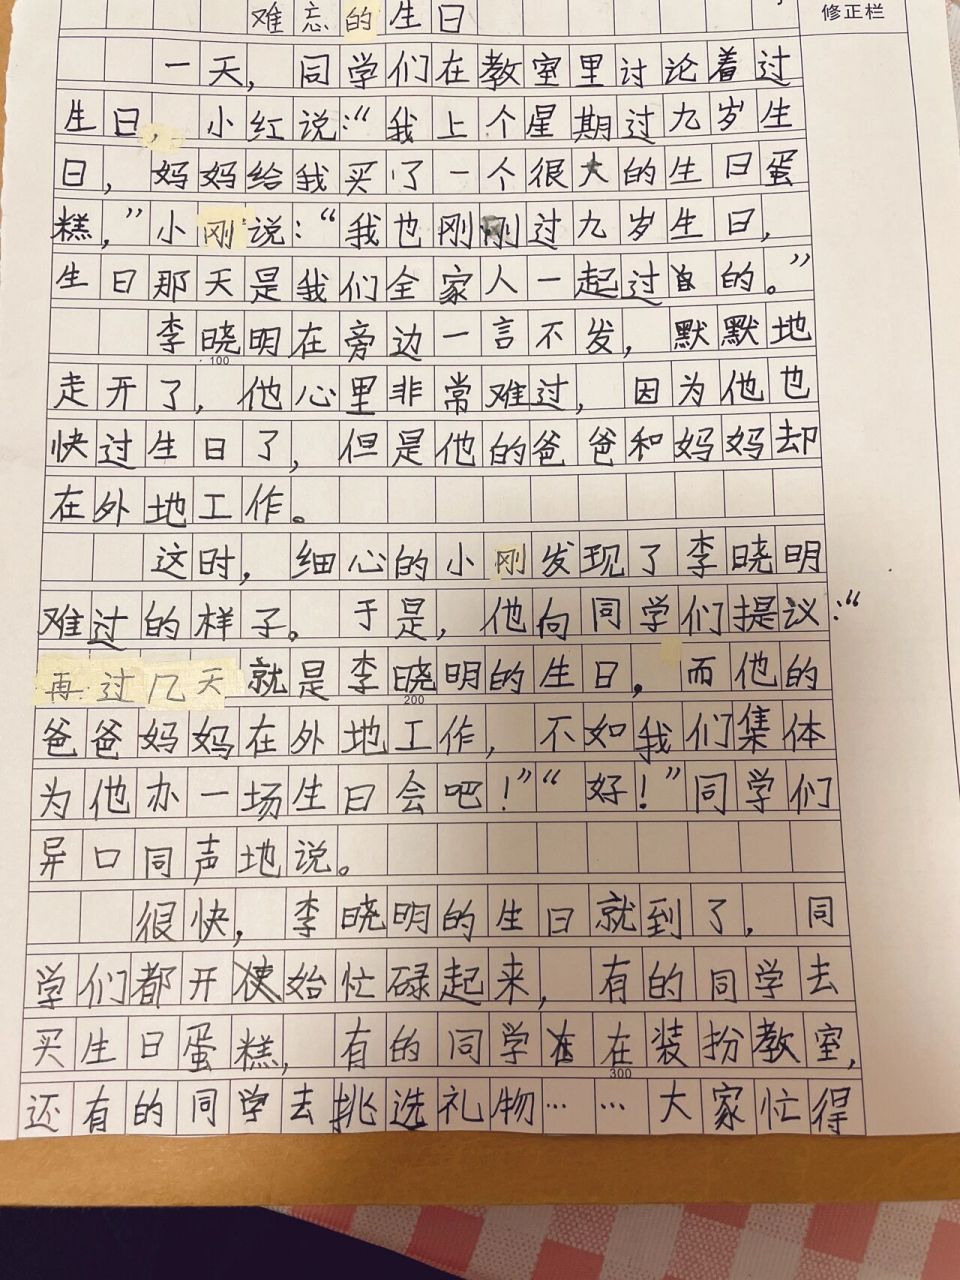 难忘的生日
修正栏
一天，同学们在教室里讨论着过
生日，小红说：“我上个星期过九岁生
日，妈妈给我买了一个很大的生日蛋
糕，”小刚说：“我也刚刚过九岁生日，
生日那天是我们全家人一起过的。”
李晓明在旁边一言不发，默默地
100
走开了，他心里非常难过，因为他也
快过生日了，但是他的爸爸和妈妈却
在外地工作。
这时，细心的小刚发现了李晓明
难过的样子。于是，他向同学们提议：“
再过几天就是李晓明的生日，而他的
200
爸爸妈妈在外地工作，不如我们集体
为他办一场生日会吧！”“好！”同学们
异口同声地说。
很快，李晓明的生日就到了，同
学们都开始忙碌起来，有的同学去
买生日蛋糕，有的同学在装扮教室，
300
还有的同学去挑选礼物……大家忙得